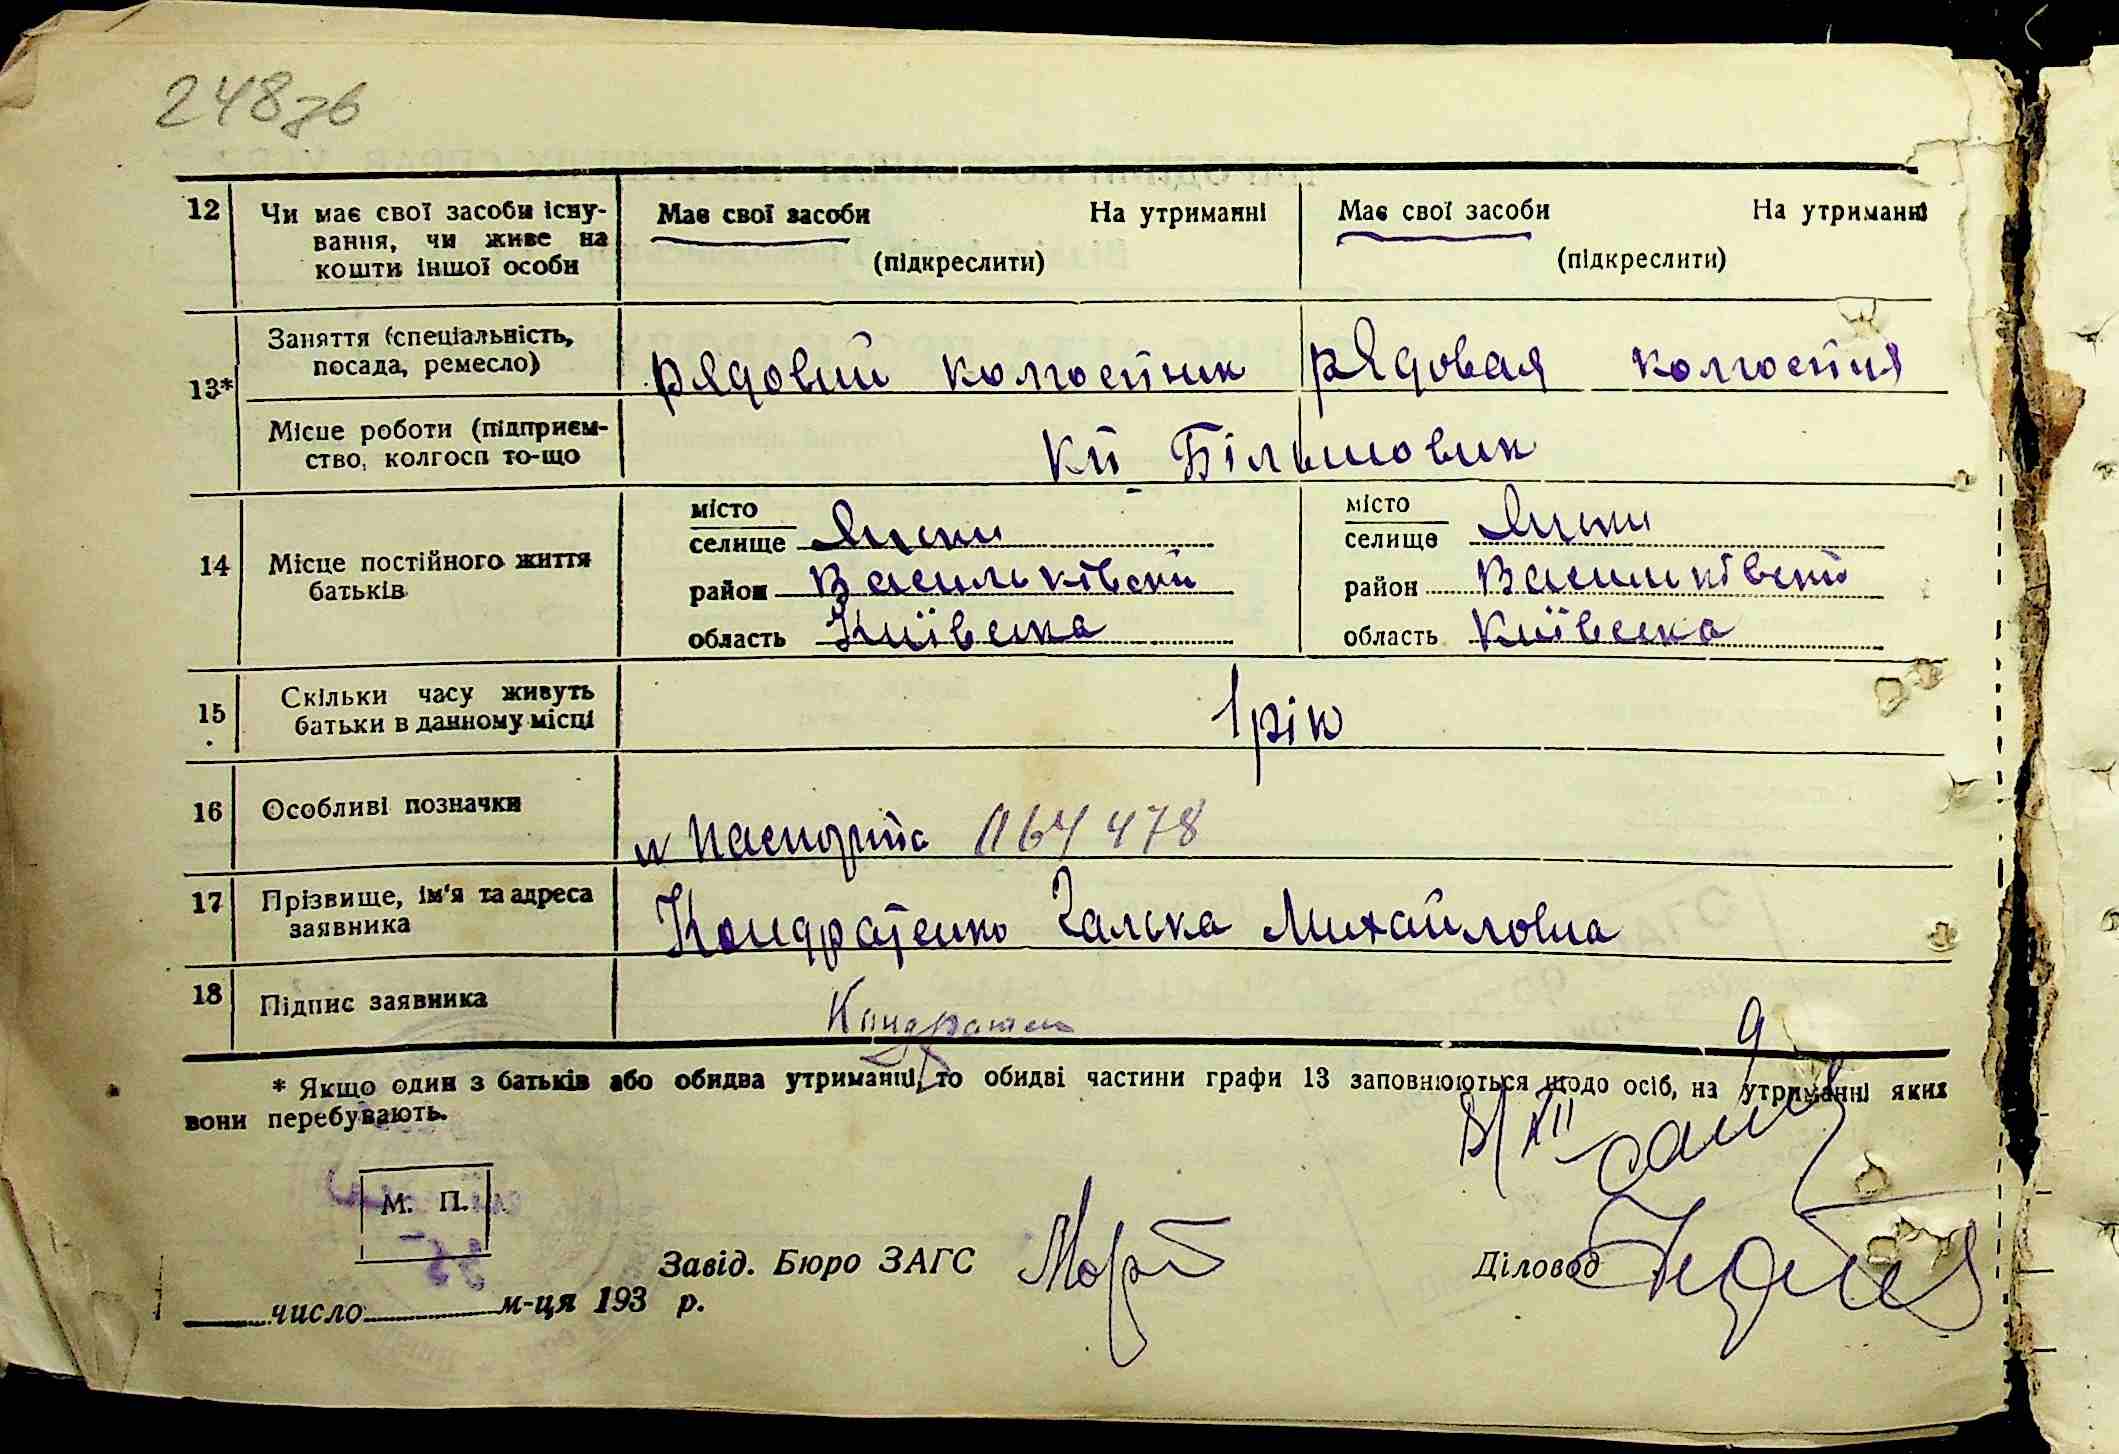 248зв
12 Чи має свої засоби існу- Має свої засоби На утриманні Має свої засоби На утриманні
вання, чи живе на
кошти іншої особи (підкреслити) (підкреслити)
13* Заняття (спеціальність,
посада, ремесло) рядовий колгоспник рядовая колгоспня
Місце роботи (підприєм-
ство, колгосп то-що Більшовик
14 Місце постійного життя
батьків
місто
селище
район Васильківский
область Київска
місто
селище
район Васильківский
область Київска
15 Скільки часу живуть
батьки в данному місці 1 рік
16 Особливі позначки
паспорта 064478
17 Прізвище, ім'я та адреса
заявника Кондратенко Михайловна
18 Підпис заявника
* Якщо один з батьків або обидва утриманці, то обидві частини графи 13 заповнюються щодо осіб, на утриманні яких
вони перебувають.
М. П.
Завід. Бюро ЗАГС Діловод
число м-ця 193 р.